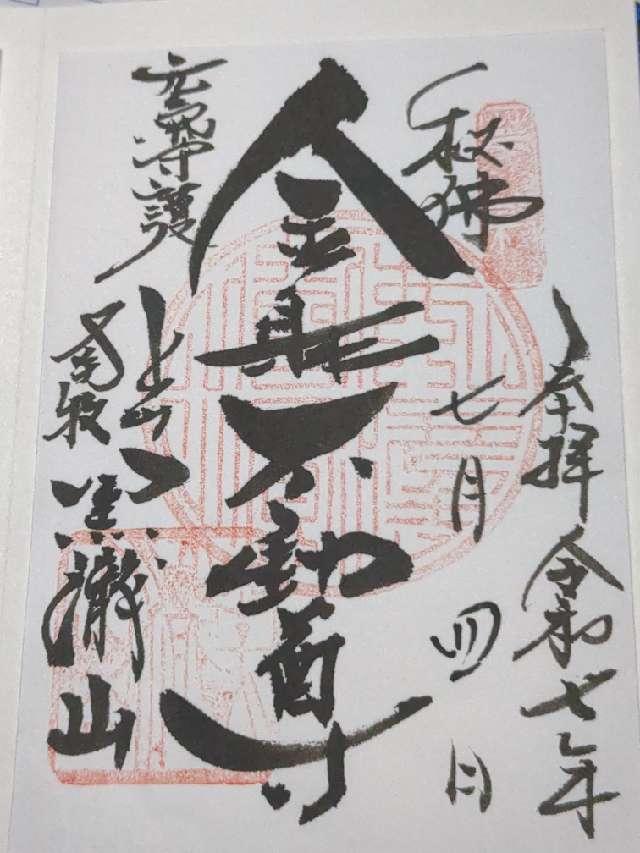 奉拝 令和七年
七月四日
秘佛
金 不動尊
守護
上州
南牧
黒瀧山